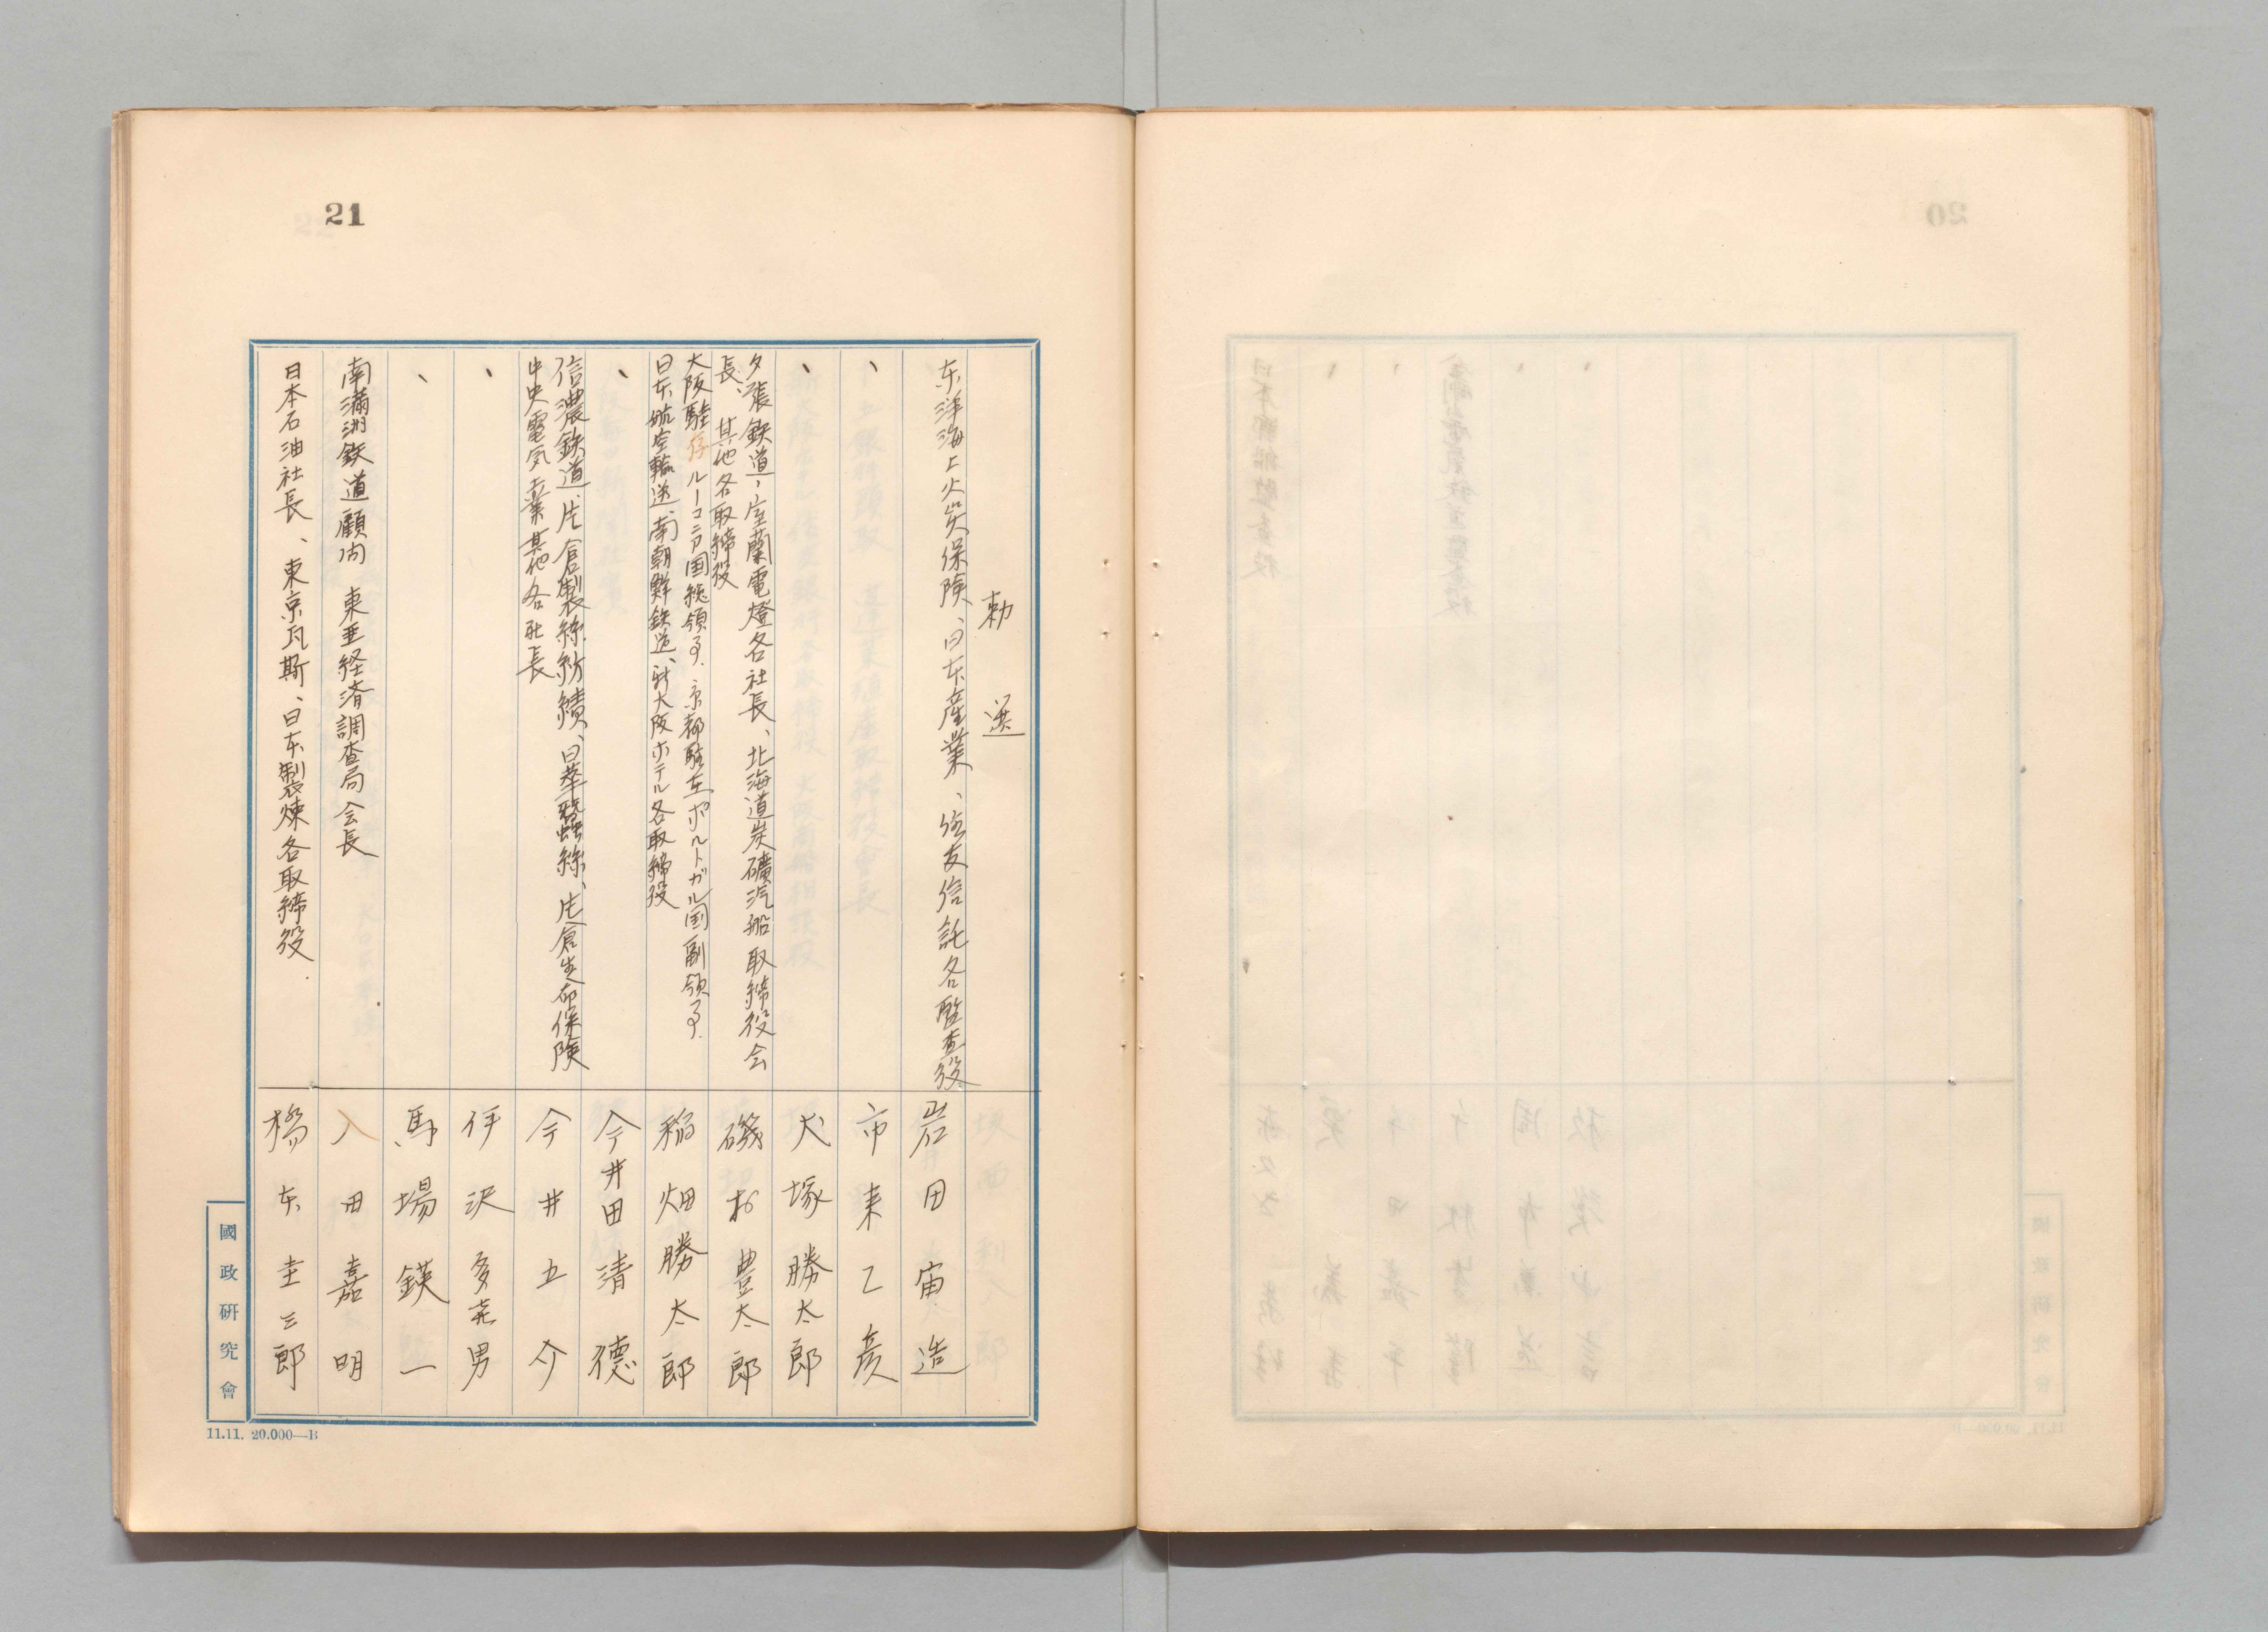 21
勅選
東洋海上火災保険、日本産業、住友信託各監査役
岩田宙造
、
市来乙彦
、
犬塚勝太郎
夕張鉄道、室蘭電燈各社長、北海道炭礦汽船取締役会
長、其他各取締役
磯村豊太郎
大阪駐在ルーマニア国総領事.京都駐在ポルトガル国副領事.
日本航空輸送、南朝鮮鉄道、新大阪ホテル各取締役
稲畑勝太郎
、
今井田清徳
信濃鉄道、片倉製絲紡績、日華蠶絲、片倉生命保険
中央電気工業其他各社長
今井五介
、
伊沢多喜男
、
馬場鍈一
南満洲鉄道顧問 東亜経済調査局会長
八田嘉明
日本石油社長、東京瓦斯、日本製煉各取締役.
橋本圭三郎
國政研究會
11.11. 20.000—B